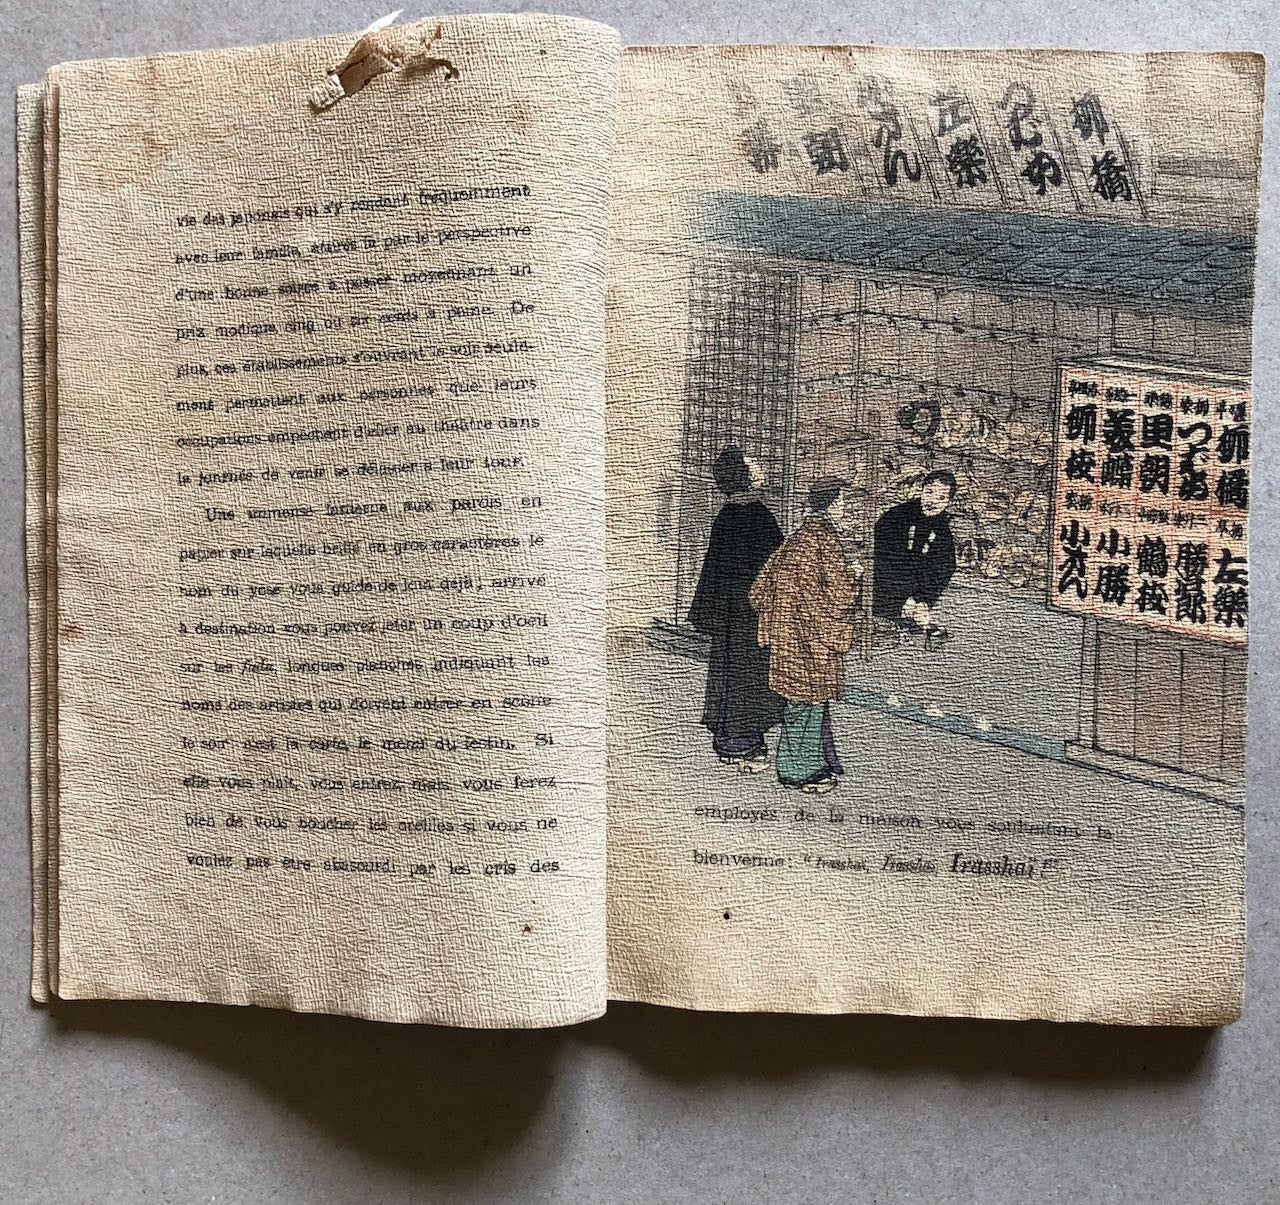 vie des japonais qui s'y rendent fréquemment
avec leur famille, attirés là par la perspective
d'une bonne soirée à passer moyennant un
prix modique cinq ou six cents à peine. De
plus, ces établissements s'ouvrant le soir seule-
ment permettent aux personnes que leurs
occupations empêchent d'aller au théâtre dans
la journée de venir se délasser à leur tour.
Une immense lanterne aux parois en
papier sur laquelle brille en gros caractères le
nom du yose vous guide de loin déjà; arrivé
à destination vous pouvez jeter un coup d'oeil
sur les fuda, longues planches indiquant les
noms des artistes qui doivent entrer en scène
le soir: c'est la carte, le menu du festin. Si
elle vous plaît, vous entrez, mais vous ferez
bien de vous boucher les oreilles si vous ne
voulez pas être abasourdi par les cris des
柳橋
つばめ
左樂
小さん
柳橋
つばめ
里朝
柳枝
左樂
勝次郎
鶴枝
小勝
小さん
employés de la maison vous souhaitant la
bienvenue: "Irasshaï, Irasshaï, Irasshaï!"